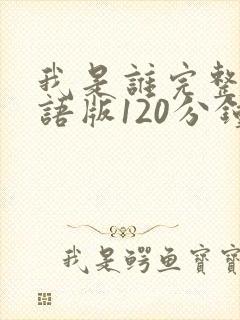 我是誰完整
語版120分鐘
我是鳄鱼寶寶